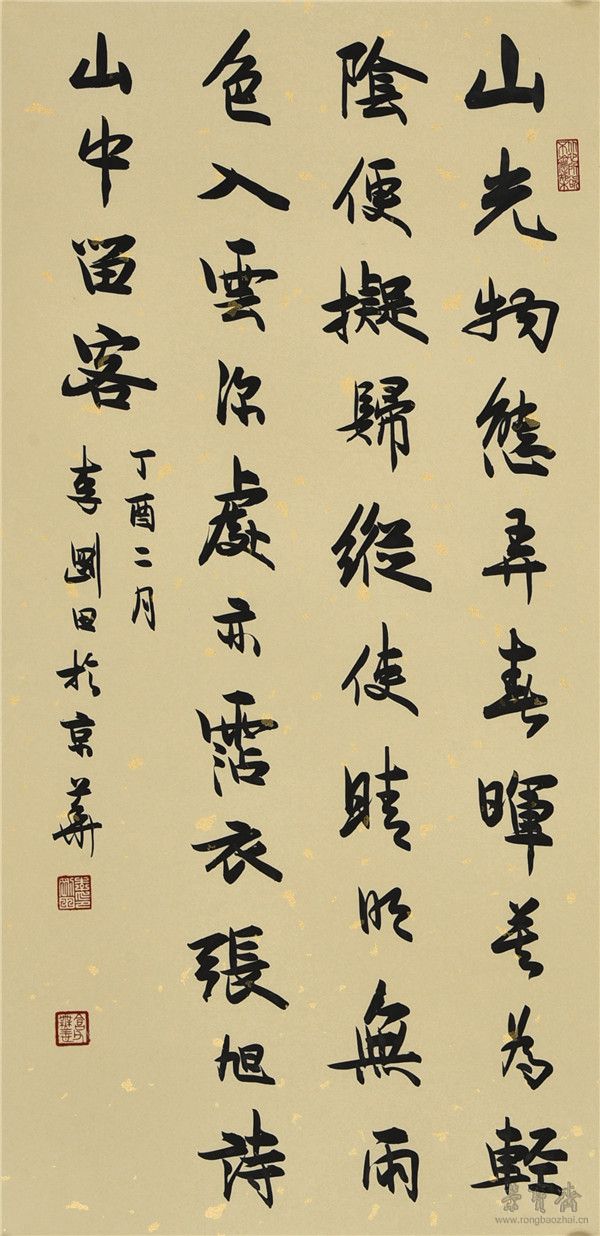 山光物態弄春暉莫為輕
陰便擬歸縱使晴明無雨
色入雲深處亦霑衣張旭詩
山中留客
丁酉二月
李剛田於京華
榮寶齋
www.rongbaozhai.cn